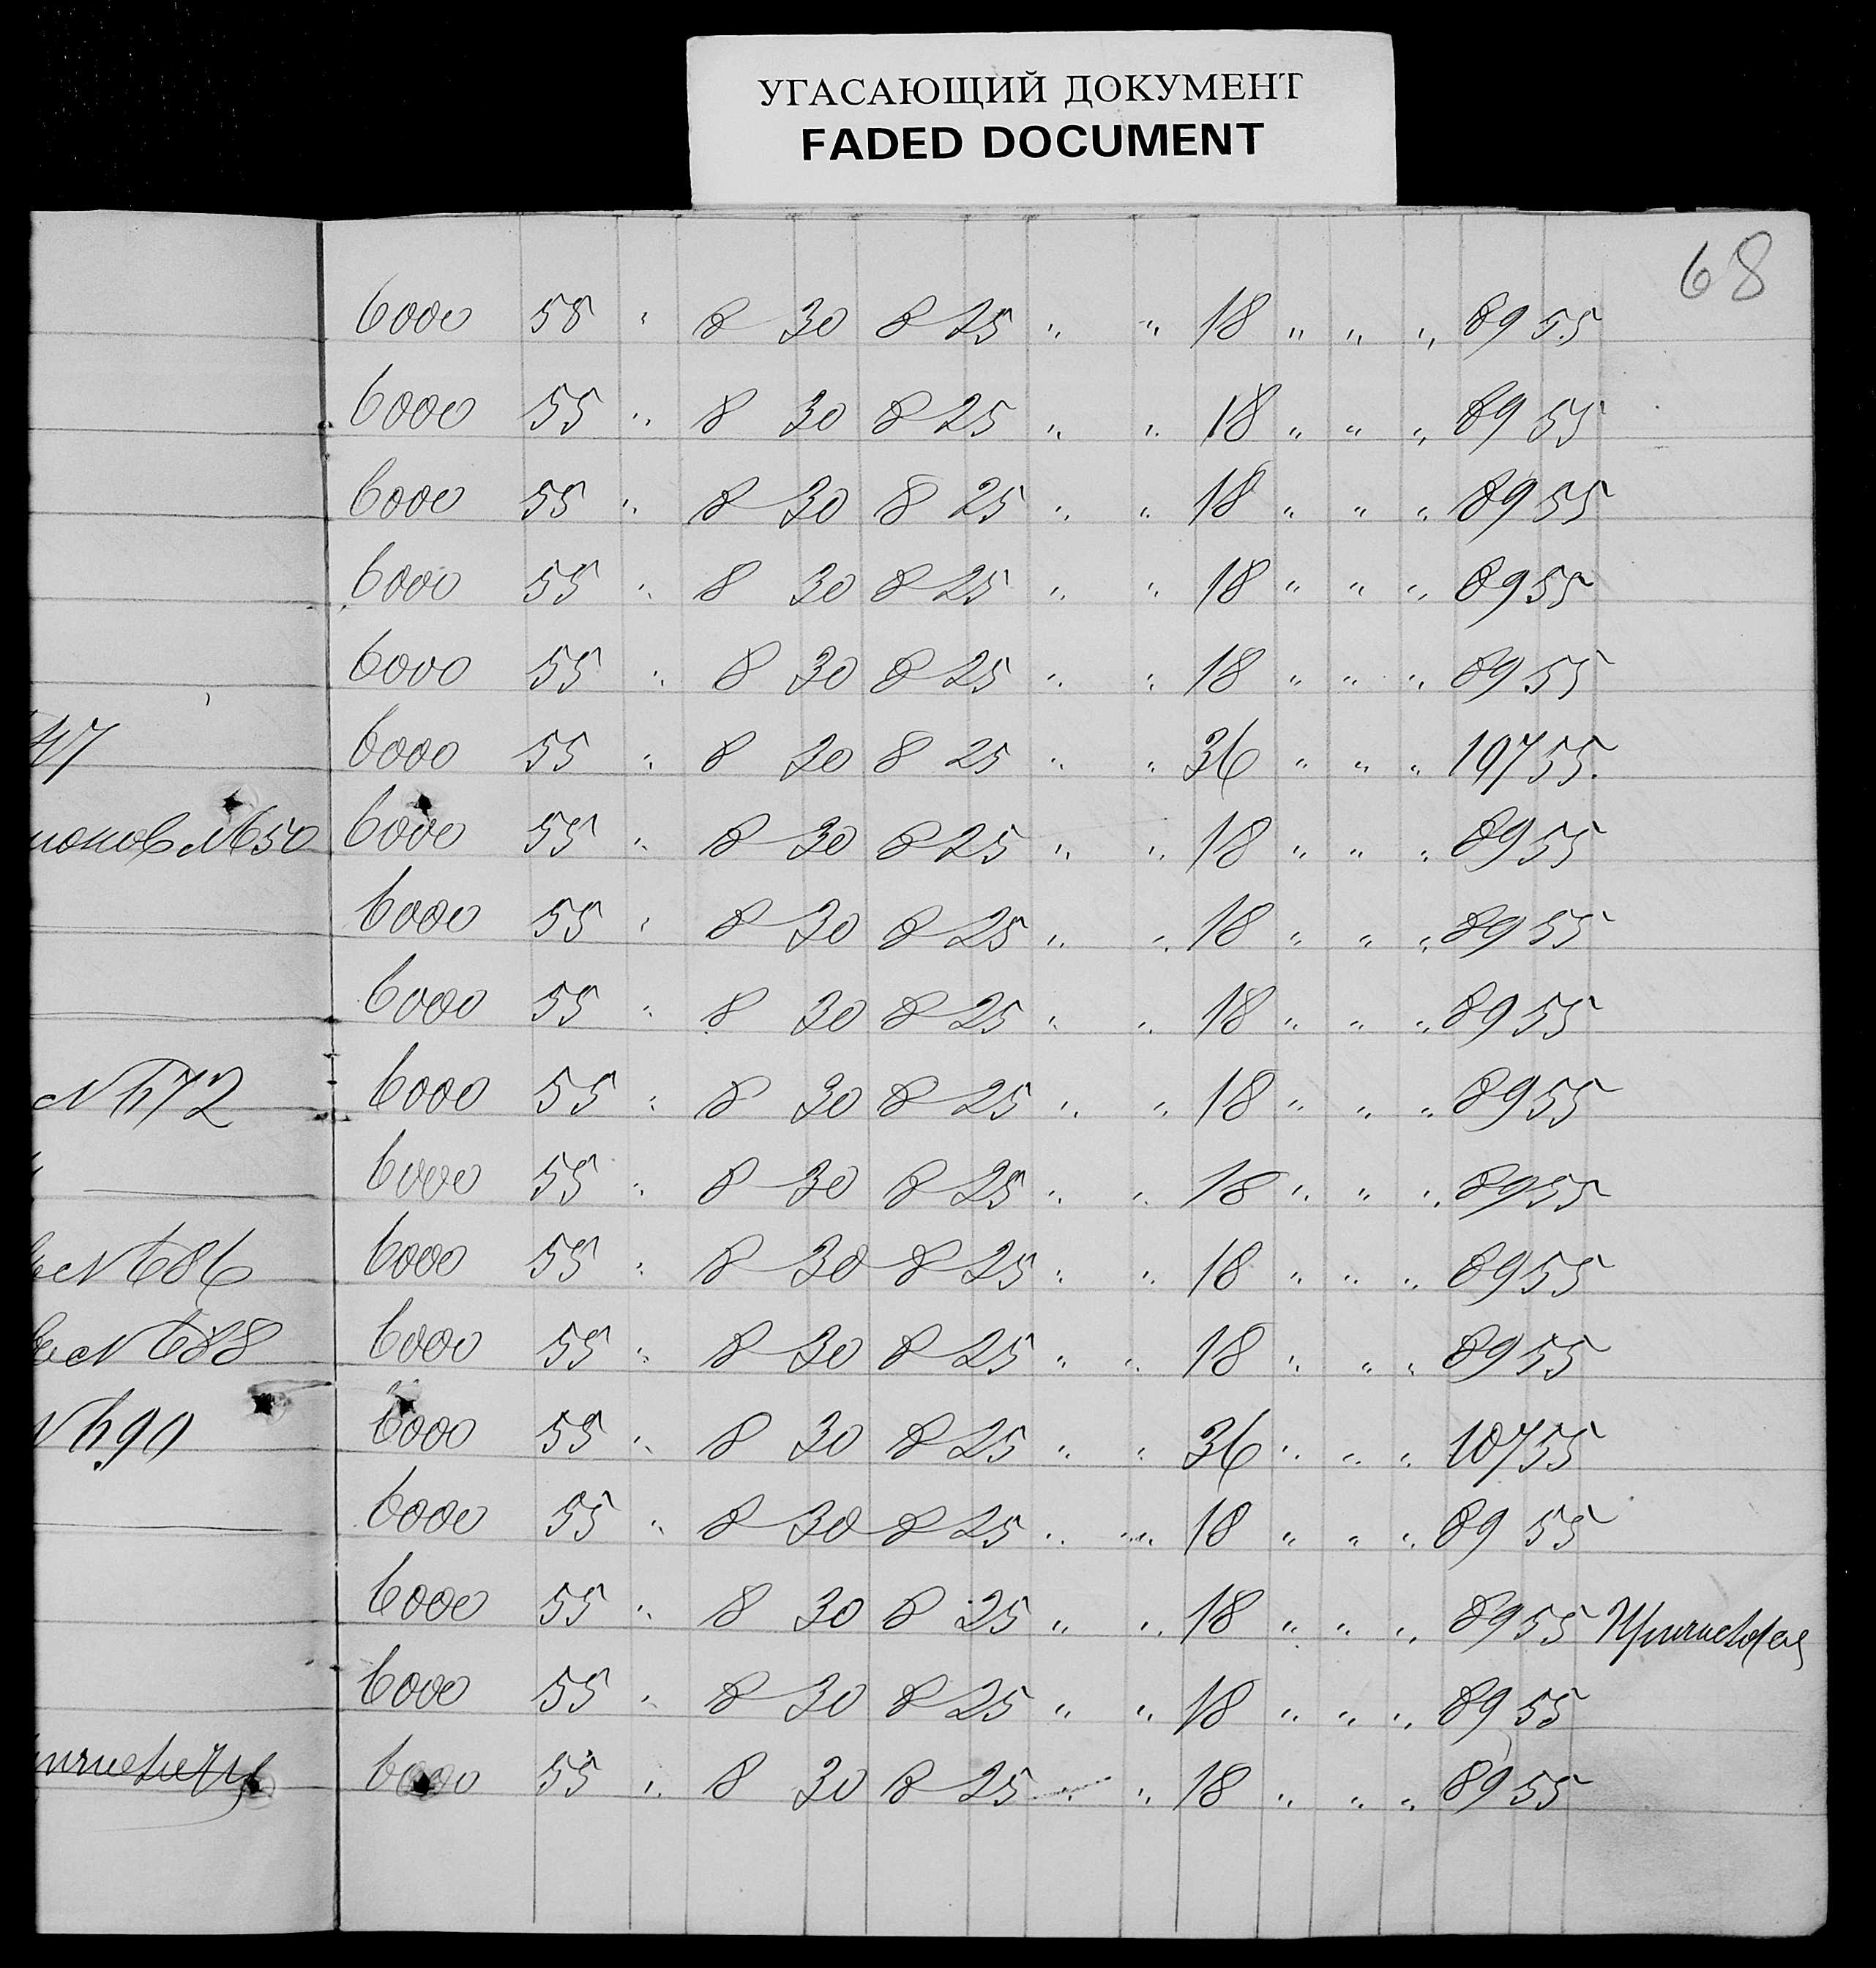 УГАСАЮЩИЙ ДОКУМЕНТ
FADED DOCUMENT
68
6000 55 " 8 30 8 25 " " 18 " " " 89 55
6000 55 " 8 30 8 25 " " 18 " " " 89 55
6000 55 " 8 30 8 25 " " 18 " " " 89 55
6000 55 " 8 30 8 25 " " 18 " " " 89 55
6000 55 " 8 30 8 25 " " 18 " " " 89 55
47 6000 55 " 8 30 8 25 " " 36 " " " 107 55.
№50 6000 55 " 8 30 8 25 " " 18 " " " 89 55
6000 55 " 8 30 8 25 " " 18 " " " 89 55
6000 55 " 8 30 8 25 " " 18 " " " 89 55
№72 6000 55 " 8 30 8 25 " " 18 " " " 89 55
6000 55 " 8 30 8 25 " " 18 " " " 89 55
№86 6000 55 " 8 30 8 25 " " 18 " " " 89 55
№88 6000 55 " 8 30 8 25 " " 18 " " " 89 55
№90 6000 55 " 8 30 8 25 " " 36 " " " 107 55
6000 55 " 8 30 8 25 " " 18 " " " 89 55
6000 55 " 8 30 8 25 " " 18 " " " 89 55
6000 55 " 8 30 8 25 " " 18 " " " 89 55
6000 55 " 8 30 8 25 " " 18 " " " 89 55